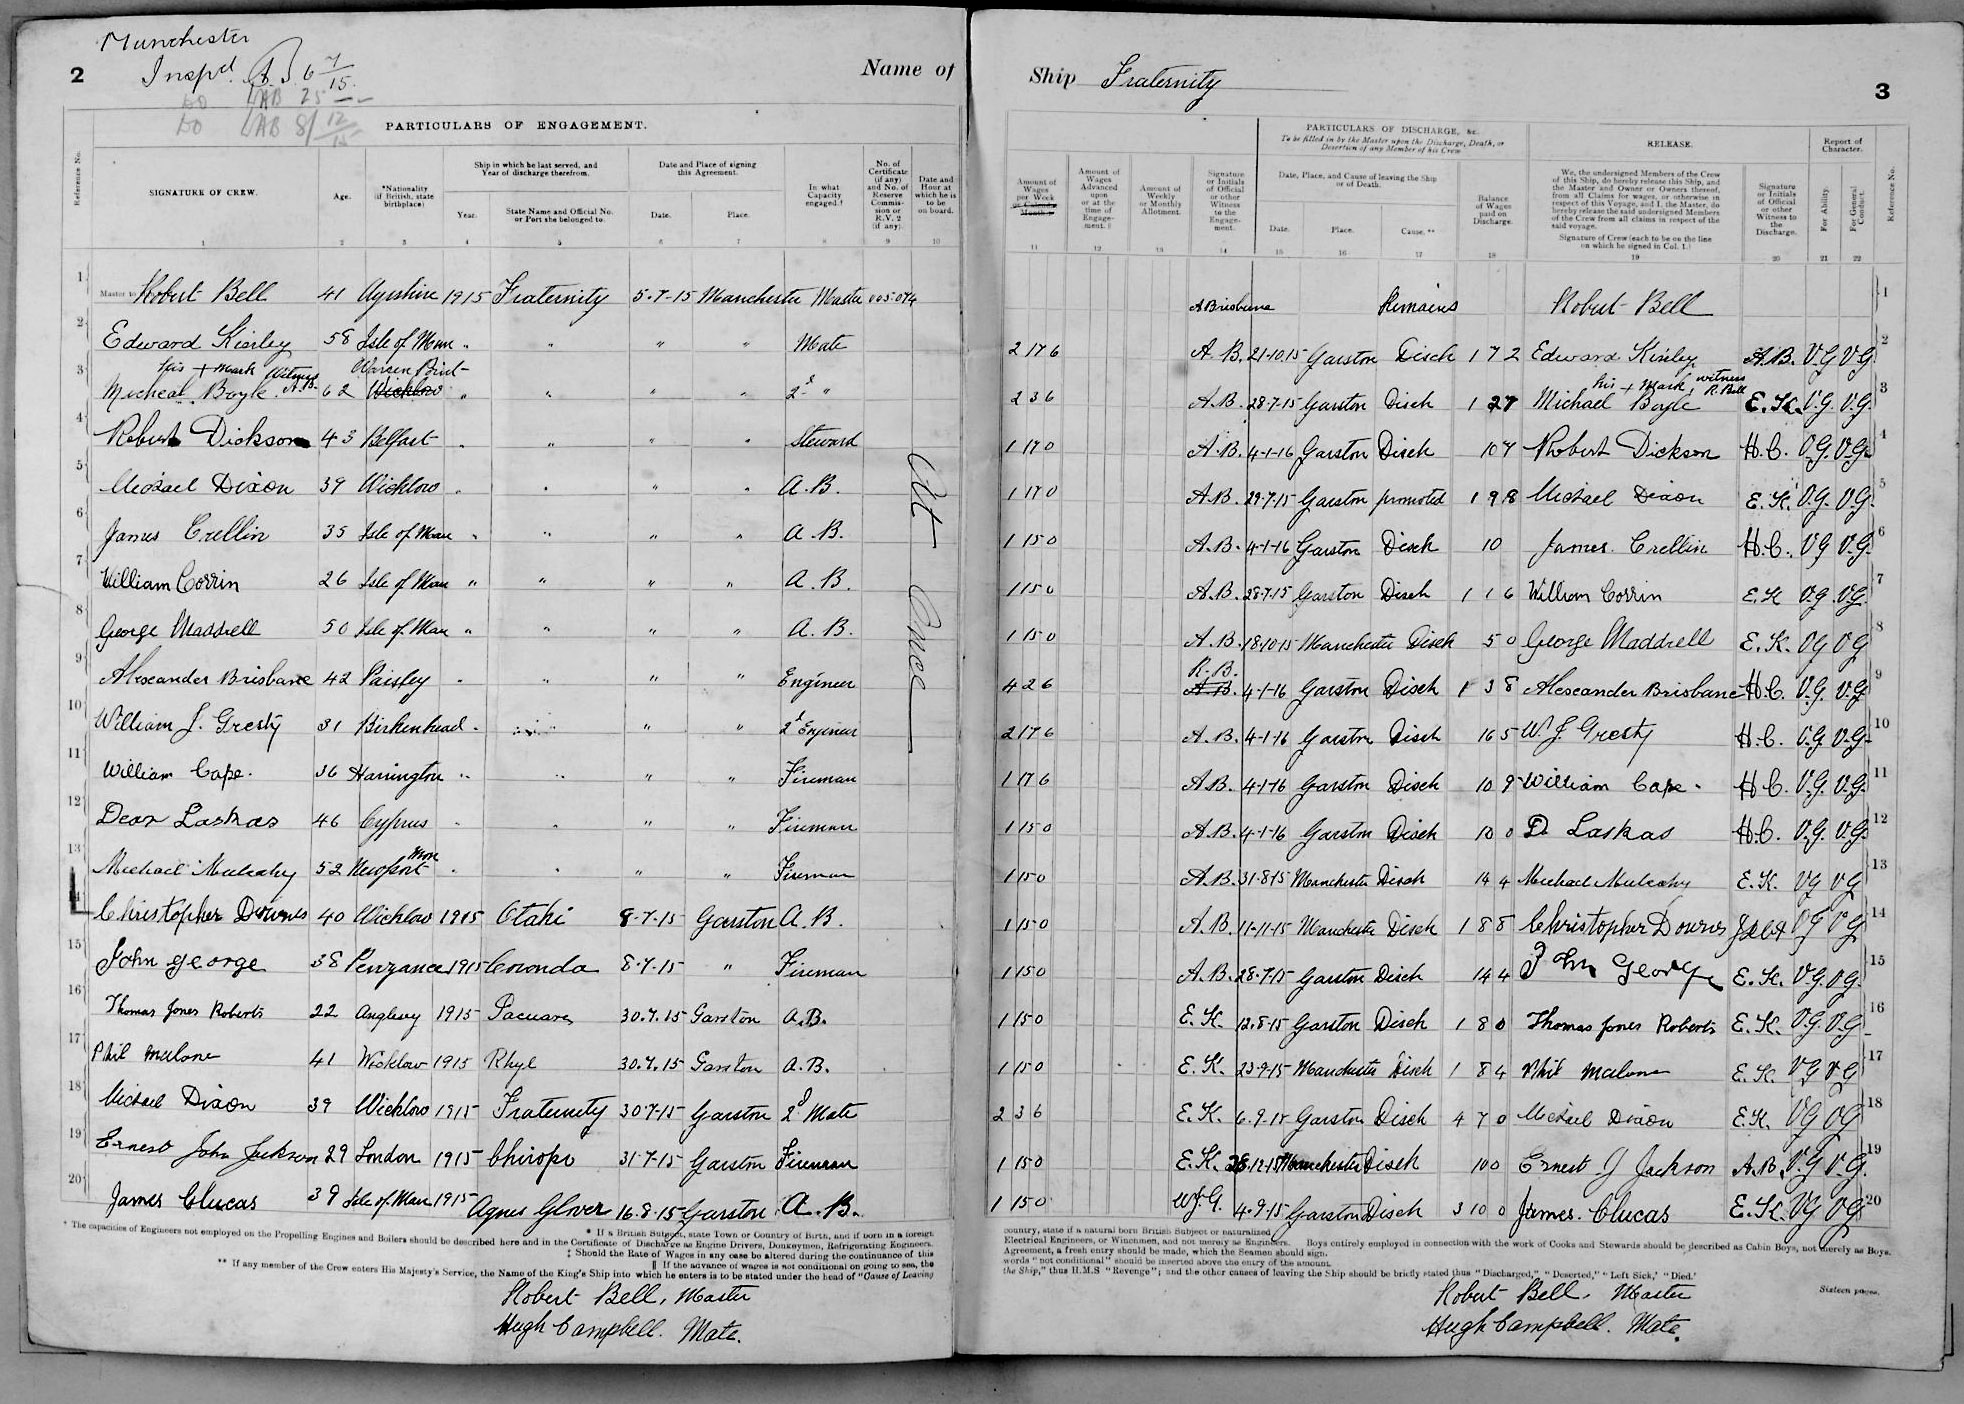 Manchester
Inspd. 6 7/15
2
Do AB 25
Do AB 8/12/15
Name of
PARTICULARS OF ENGAGEMENT.
Reference No.
SIGNATURE OF CREW.
Age.
*Nationality (if British, state birthplace)
Ship in which he last served, and Year of discharge therefrom.
Year.
State Name and Official No. or Port she belonged to.
Date and Place of signing this Agreement.
Date.
Place.
In what Capacity engaged.†
No. of Certificate (if any) and No. of Reserve Commission or R.V. 2 (if any).
Date and Hour at which he is to be on board.
1 2 3 4 5 6 7 8 9 10
1 Master to Robert Bell 41 Ayrshire 1915 Fraternity 5-7-15 Manchester Master 005.074
2 Edward Kinley 58 Isle of Man " " " " Mate
3 his + mark Witness A.B. Warren Point
Micheal Boyle 62 Wicklow " " " " 2d "
4 Robert Dickson 43 Belfast " " " " Steward
5 Michael Dixon 39 Wicklow " " " " A.B.
6 James Crellin 35 Isle of Man " " " " A.B.
7 William Corrin 26 Isle of Man " " " " A.B.
8 George Maddrell 50 Isle of Man " " " " A.B.
9 Alexander Brisbane 42 Paisley " " " " Engineer
10 William J. Gresty 31 Birkenhead " " " " 2d Engineer
11 William Cape. 36 Harrington " " " " Fireman
12 Dear Laskas 46 Cyprus " " " " Fireman
13 Michael Mulcahy 52 Newport Mon " " " " Fireman
14 Christopher Downes 40 Wicklow 1915 Otaki 8-7-15 Garston A.B.
15 John george 38 Penzance 1915 Coronda 8-7-15 " Fireman
16 Thomas Jones Roberts 22 Anglesey 1915 Pacuare 30.7.15 Garston A.B.
17 Phil Malone 41 Wicklow 1915 Rhyl 30.7.15 Garston A.B.
18 Michael Dixon 39 Wicklow 1915 Fraternity 30-7-15 Garston 2d Mate
19 Ernest John Jackson 29 London 1915 Chirope 31-7-15 Garston Fireman
20 James Clucas 39 Isle of Man 1915 Agnes Glover 16-8-15 Garston A.B.
At Once
* The capacities of Engineers not employed on the Propelling Engines and Boilers should be described here and in the Certificate of Discharge as Engine Drivers, Donkeymen, Refrigerating Engineers,
* If a British Subject, state Town or Country of Birth, and if born in a foreign
‡ Should the Rate of Wages in any case be altered during the continuance of this
‖ If the advance of wages is not conditional on going to sea, the
** If any member of the Crew enters His Majesty's Service, the Name of the King's Ship into which he enters is to be stated under the head of "Cause of Leaving
Robert Bell, Master
Hugh Campbell. Mate.
Ship Fraternity
3
PARTICULARS OF DISCHARGE, &c.
To be filled in by the Master upon the Discharge, Death, or Desertion of any Member of his Crew
RELEASE.
Report of Character.
Amount of Wages per Week or Calendar Month.‡
Amount of Wages Advanced upon or at the time of Engagement.‖
Amount of Weekly or Monthly Allotment.
Signature or Initials of Official or other Witness to the Engagement.
Date, Place, and Cause of leaving the Ship or of Death.
Date.
Place.
Cause.**
Balance of Wages paid on Discharge.
We, the undersigned Members of the Crew of this Ship, do hereby release this Ship, and the Master and Owner or Owners thereof, from all Claims for wages, or otherwise in respect of this Voyage, and I, the Master, do hereby release the said undersigned Members of the Crew from all claims in respect of the said voyage.
Signature of Crew (each to be on the line on which he signed in Col. 1.)
Signature or Initials of Official or other Witness to the Discharge.
For Ability.
For General Conduct.
Reference No.
11 12 13 14 15 16 17 18 19 20 21 22
A Brisbane Remains Robert Bell 1
2 17 6 A.B. 21-10-15 Garston Disch 1 7 2 Edward Kinley A.B. V.G V.G 2
his + mark, witness R. Bell
2 3 6 A.B. 28-7-15 Garston Disch 1 2 7 Michael Boyle E.K. V.G. V.G. 3
1 17 0 A.B. 4-1-16 Garston Disch 10 7 Robert Dickson H.C. V.G. V.G. 4
1 17 0 A.B. 29-7-15 Garston promoted 1 9 8 Michael Dixon E.K. V.G. V.G. 5
1 15 0 A.B. 4-1-16 Garston Disch 10 James Crellin H.C. V.G V.G. 6
1 15 0 A.B. 28-7-15 Garston Disch 1 1 6 William Corrin E.K V.G. V.G. 7
1 15 0 A.B. 18-10-15 Manchester Disch 5 0 George Maddrell E.K. VG VG 8
R.B.
4 2 6 A.B. 4-1-16 Garston Disch 1 3 8 Alexander Brisbane H.C. V.G. V.G 9
2 17 6 A.B. 4-1-16 Garston Disch 16 5 W.J. Gresty H.C. V.G. V.G. 10
1 17 6 A.B. 4-1-16 Garston Disch 10 9 William Cape. H.C. V.G. V.G. 11
1 15 0 A.B. 4-1-16 Garston Disch 10 0 D. Laskas H.C. V.G. V.G. 12
1 15 0 A.B. 31-8-15 Manchester Disch 14 4 Michael Mulcahy E.K. VG VG 13
1 15 0 A.B. 11-11-15 Manchester Disch 1 8 8 Christopher Downes VG VG 14
1 15 0 A.B. 28-7-15 Garston Disch 14 4 John George E.K. V.G. V.G. 15
1 15 0 E.K. 12-8-15 Garston Disch 1 8 0 Thomas Jones Roberts E.K. V.G. V.G 16
1 15 0 E.K. 23-9-15 Manchester Disch 1 8 4 Phil Malone E.K. VG VG 17
2 3 6 E.K. 6-9-15 Garston Disch 4 7 0 Michael Dixon E.K. VG VG 18
1 15 0 E.K. 28-12-15 Manchester Disch 10 0 Ernest J Jackson A.B. V.G V.G. 19
1 15 0 W.J.G. 4-9-15 Garston Disch 3 10 0 James. Clucas E.K. VG VG 20
country, state if a natural born British Subject or naturalized
Electrical Engineers, or Winchmen, and not merely as Engineers. Boys entirely employed in connection with the work of Cooks and Stewards should be described as Cabin Boys, not merely as Boys.
Agreement, a fresh entry should be made, which the Seamen should sign.
words "not conditional" should be inserted above the entry of the amount.
the Ship," thus H.M.S "Revenge"; and the other causes of leaving the Ship should be briefly stated thus "Discharged," "Deserted," "Left Sick,' "Died.'
Sixteen pages.
Robert Bell, Master
Hugh Campbell. Mate.